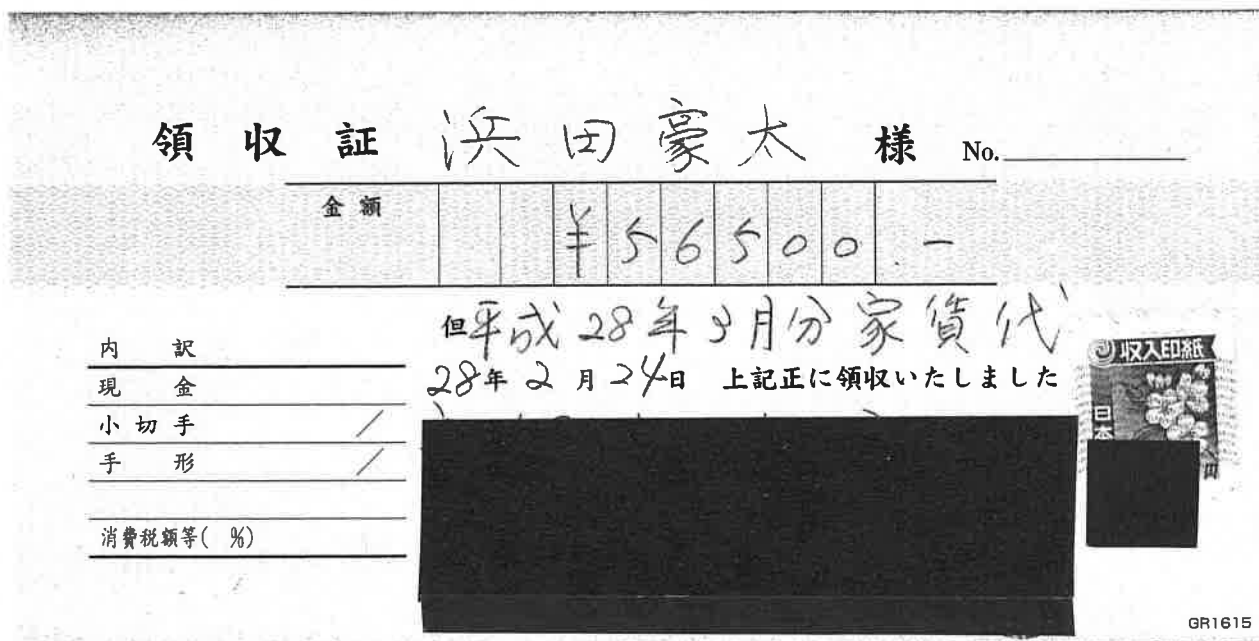 領収証 浜田豪太 様 No.
金額 ¥56500.-
但平成28年3月分家賃代
28年2月24日 上記正に領収いたしました
内訳
現金
小切手 /
手形 /
消費税額等( %)
収入印紙
日本
GR1615